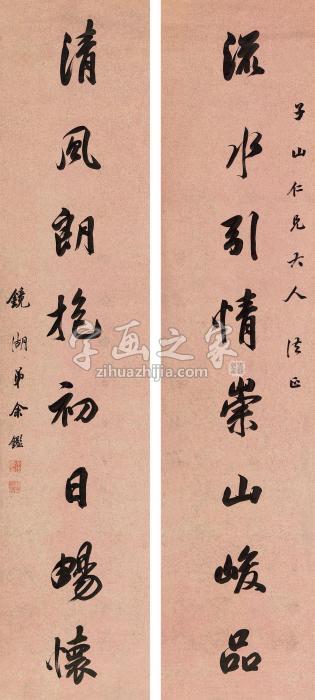 子山仁兄大人法正
流水引情崇山峻品
清風朗抱初日暢懷
鏡湖弟余鑑
字画之家
zihuazhijia.com